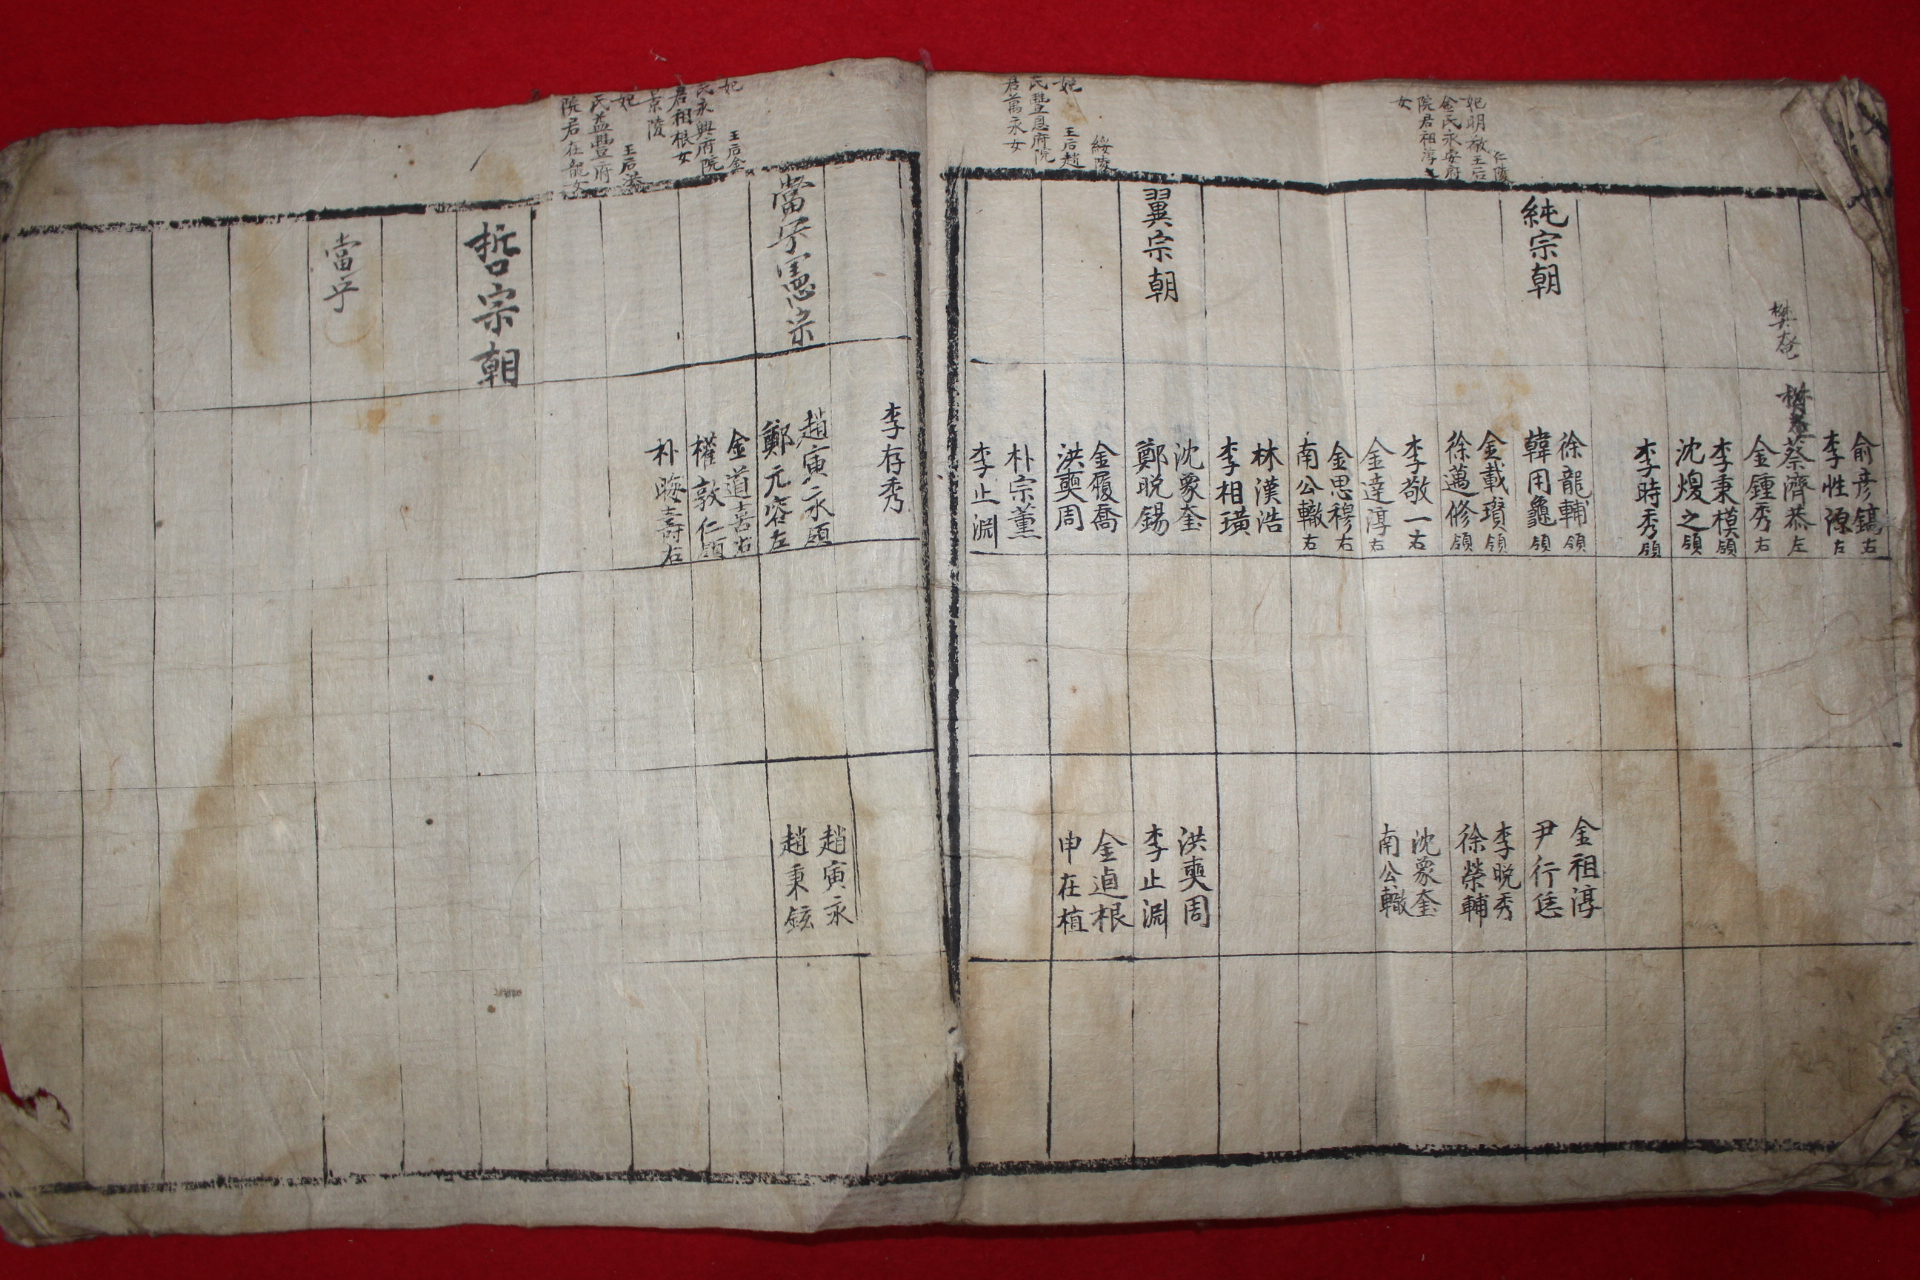 仁陵
妃明敬王后
金氏永安府
院君祖淳
女
綏陵
妃 王后趙
氏豊恩府院
君萬永女
妃 王后金
氏永興府院
君祖根女
景陵
妃 王后
氏益豊府
院君在龍女
樊庵
純宗朝
翼宗朝
當宁憲宗
哲宗朝
當宁
俞彦鎬右
李性源左
蔡濟恭左
金鍾秀右
李秉模領
沈煥之領
李時秀領
徐龍輔領
韓用龜領
金載瓚領
徐邁修領
李敬一右
金達淳右
金思穆右
南公轍右
林漢浩
李相璜
沈象奎
鄭晩錫
金履喬
洪奭周
朴宗薰
李止淵
李存秀
趙寅永領
鄭元容左
金道喜右
權敦仁領
朴晦壽右
金祖淳
尹行恁
李晩秀
徐榮輔
沈象奎
南公轍
洪奭周
李止淵
金逌根
申在植
趙寅永
趙秉鉉